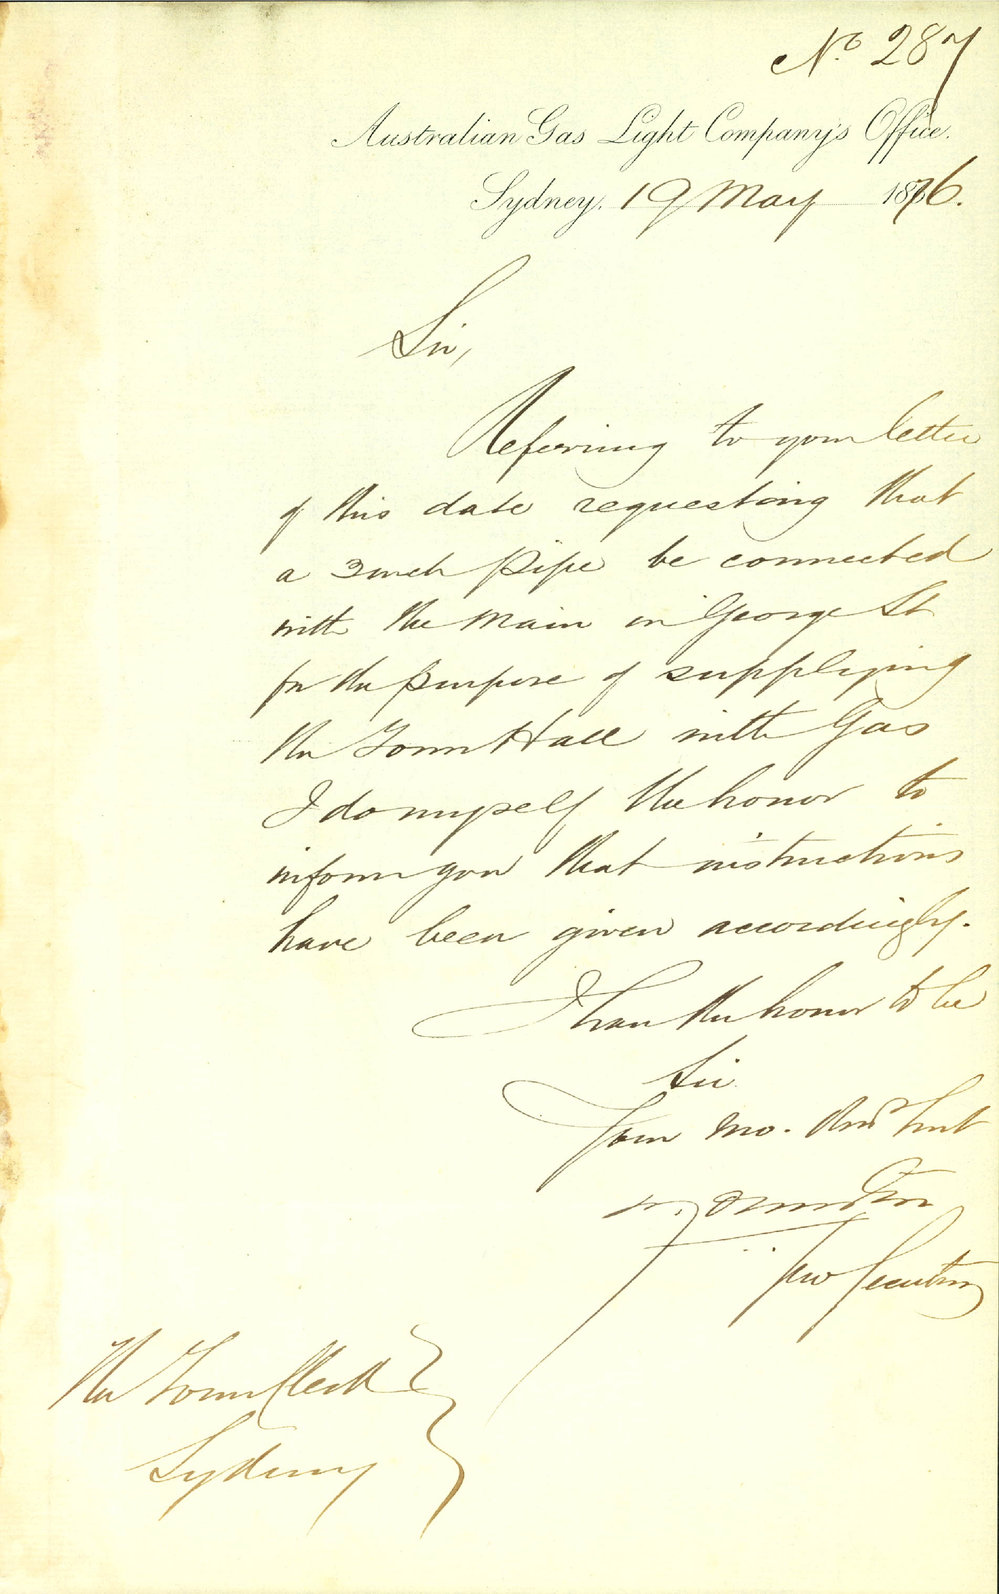 No 287
Australian Gas Light Company's Office.
Sydney. 19 May 1876.
Sir,
Referring to your letter
of this date requesting that
a 3 inch pipe be connected
with the Main in George St
for the purpose of supplying
the Town Hall with Gas
I do myself the honor to
inform you that instructions
have been given accordingly.
I have the honor to be
Sir
Your mo. Obt Servt
Secretary
The Town Clerk
Sydney